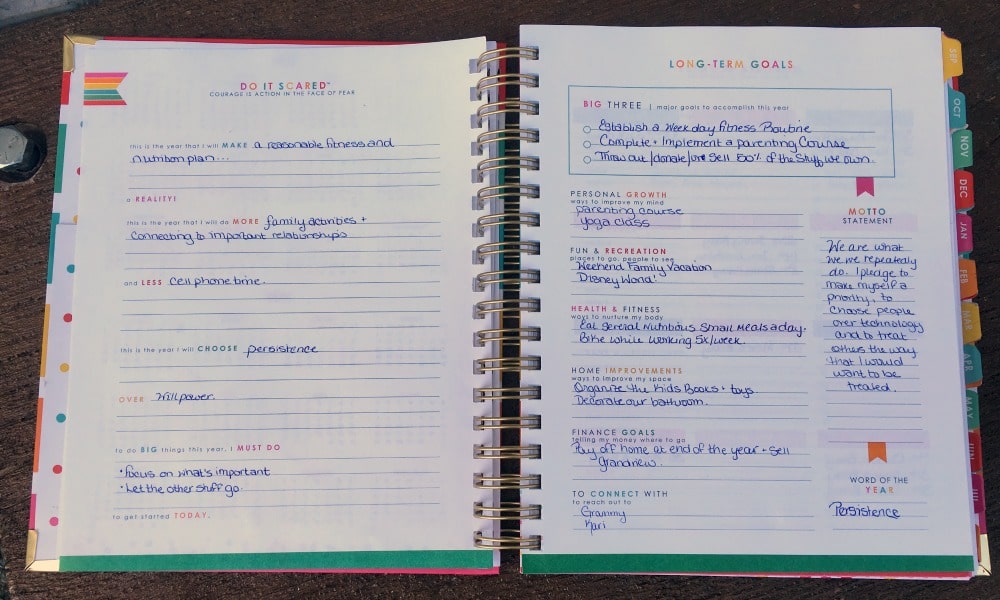 DO IT SCARED™
COURAGE IS ACTION IN THE FACE OF FEAR
this is the year that I will MAKE a reasonable fitness and
nutrition plan...
a REALITY!
this is the year that I will do MORE family activities +
connecting to important relationships
and LESS cell phone time.
this is the year I will CHOOSE persistence
OVER Willpower.
to do BIG things this year, I MUST DO
• Focus on what's important
• Let the other stuff go.
to get started TODAY.
LONG-TERM GOALS
BIG THREE | major goals to accomplish this year
Establish a Weekday Fitness Routine
Complete + Implement a parenting Course
Throw out/donate/or sell 50% of the Stuff we own.
PERSONAL GROWTH
ways to improve my mind
parenting course
yoga class
FUN & RECREATION
places to go, people to see
Weekend Family Vacation
Disney World!
HEALTH & FITNESS
ways to nurture my body
Eat several Nutritious Small Meals a day.
Bike while working 5x/week.
HOME IMPROVEMENTS
ways to improve my space
Organize the Kids Books + toys
Decorate our bathroom.
FINANCE GOALS
telling my money where to go
Pay off home at end of the year + Sell
Grandview.
TO CONNECT WITH
to reach out to
Grammy
Kari
MOTTO
STATEMENT
We are what
we we repeatedly
do. I pledge to
make myself a
priority, to
choose people
over technology
and to treat
others the way
that I would
want to be
treated.
WORD OF THE
YEAR
Persistence
SEP
OCT
NOV
DEC
JAN
FEB
MAR
APR
MAY
JUN
JUL